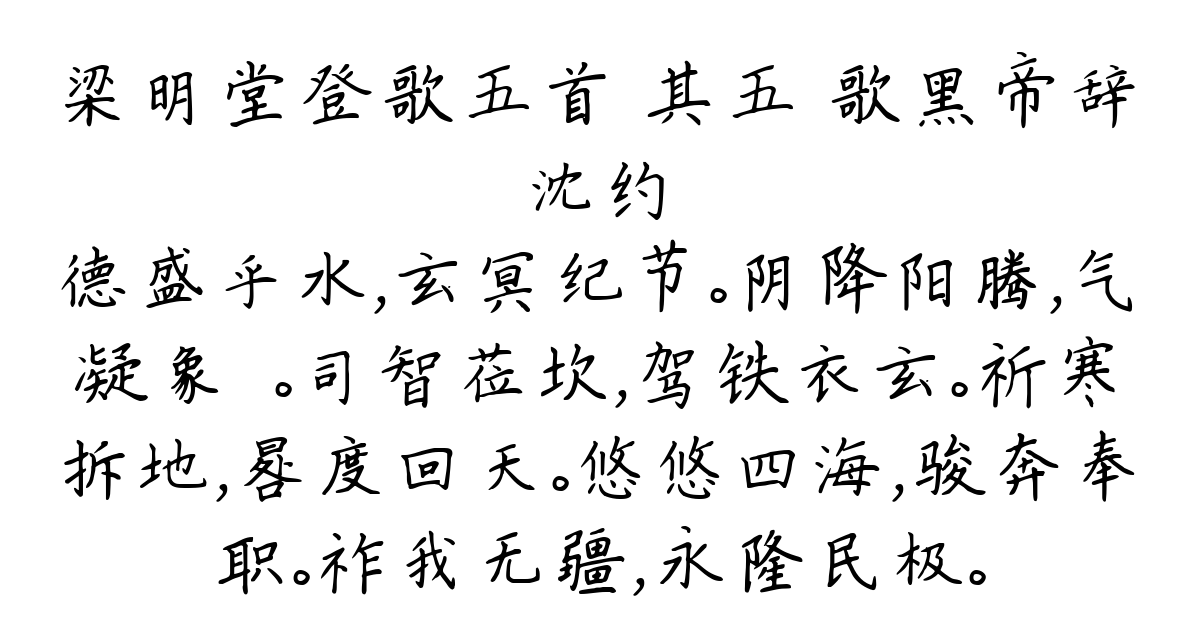 梁明堂登歌五首 其五 歌黑帝辞
沈约
德盛乎水,玄冥纪节。阴降阳腾,气
凝象 。司智莅坎,驾铁衣玄。祈寒
拆地,晷度回天。悠悠四海,骏奔奉
职。祚我无疆,永隆民极。